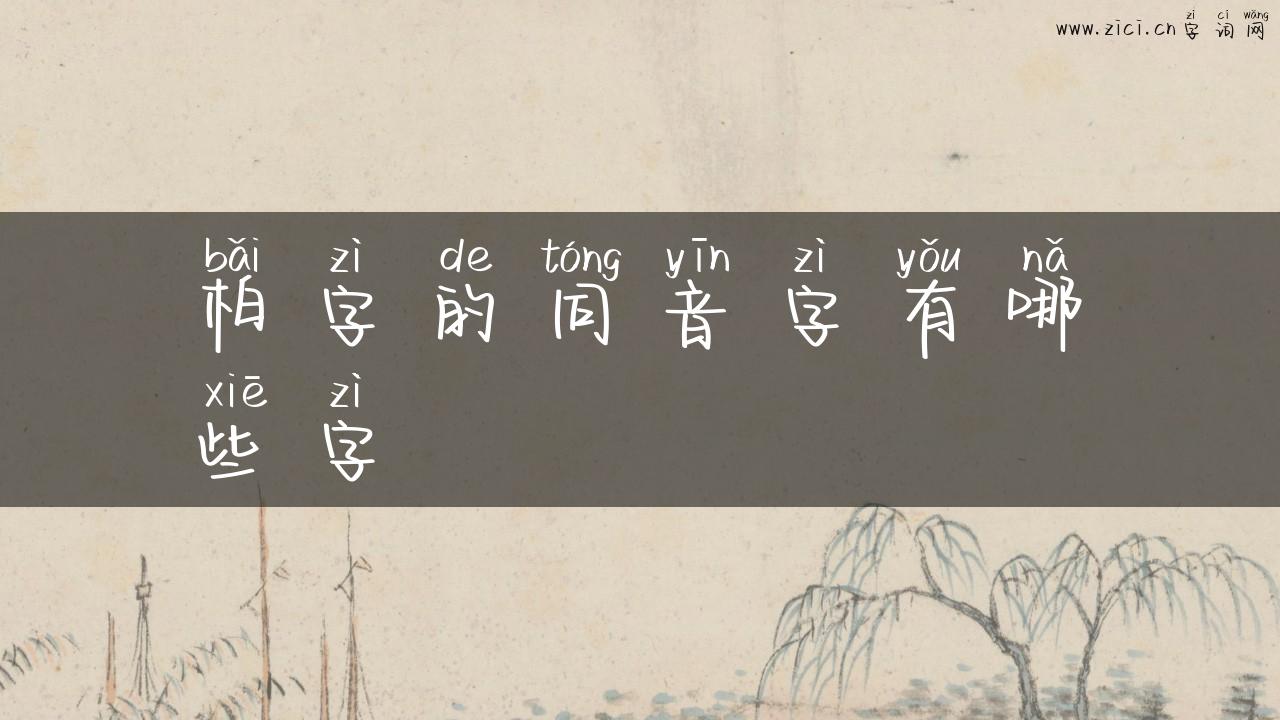 zì cí wǎng
www.zici.cn 字 词 网
bǎi zì de tóng yīn zì yǒu nǎ
柏 字 的 同 音 字 有 哪
xiē zì
些 字